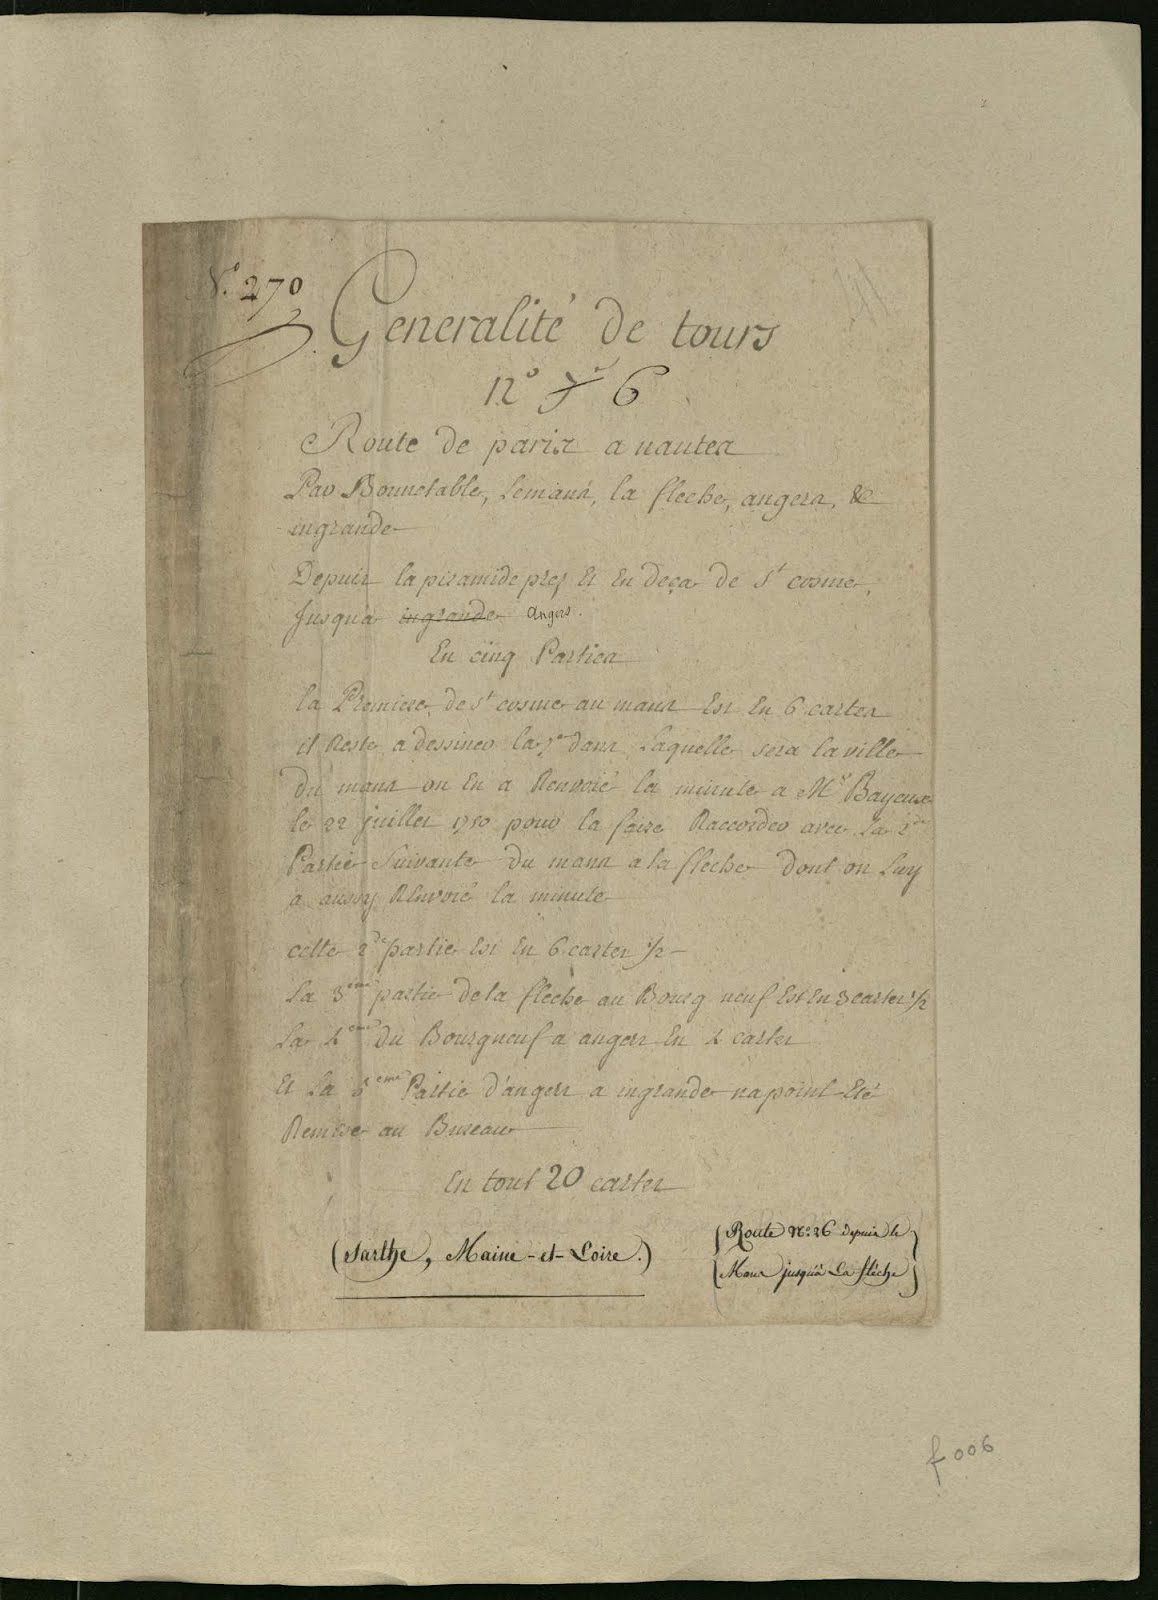 N.o 270
Generalité de tours
n.o 6
Route de paris a nantes
Par Bonnetable, Lemans, la fleche, angers, &
ingrande
Depuis la piramide pres Et En deça de St cosme,
Jusqu'a ingrande angers.
En cinq Parties
la Premiere, de St cosme au mans Est En 6 cartes
il Reste a dessiner la 7e dans Laquelle sera la ville
Du mans on En a Renvoié la minute a Mr Bayeux
le 22 juillet 1750 pour la faire Raccorder avec La 2de
Partie Suivante Du mans a la fleche Dont on Luy
a aussy Renvoié la minute
cette 2de partie Est En 6 cartes 1/2
La 3eme partie De la fleche au Bourg neuf Est En 3 cartes 1/2
La 4eme Du Bourgneuf a angers En 4 cartes
Et La 5eme Partie D'angers a ingrande na point Eté
Remise au Bureau
En tout 20 cartes
(Sarthe, Maine-et-Loire.)
(Route No. 26 depuis le
Mans jusqu'à La flèche)
f 006